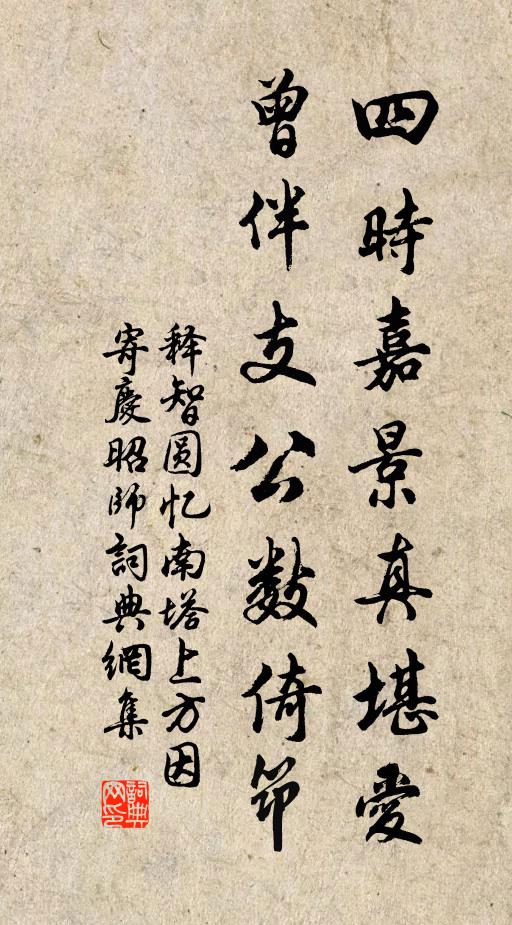 四時嘉景真堪愛
曾伴支公數倚笻
释智圆忆南塔上方因
寄慶昭師詞典網集
詞典网印